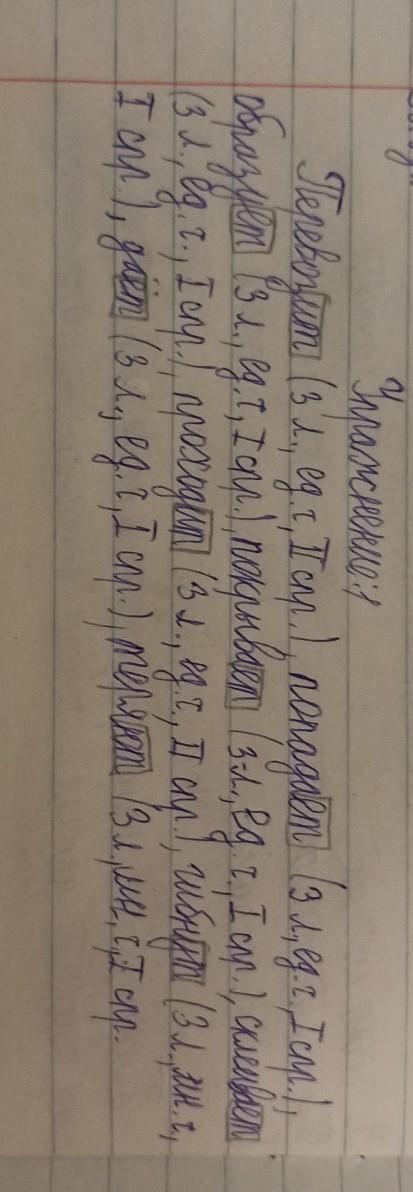 Упражнение:1
Перевозит (3 л., ед.ч, II спр.), попадает (3 л, ед.ч., I спр.),
образует (3 л., ед.ч, I спр.), покрывает (3-л., ед.ч., I спр.), склеивает
(3 л., ед.ч., I спр.), проходит (3 л., ед.ч, II спр.), гибнут (3 л., мн.ч,
I спр.), даёт (3 л., ед.ч, I спр.), теряют (3 л., мн.ч, I спр.